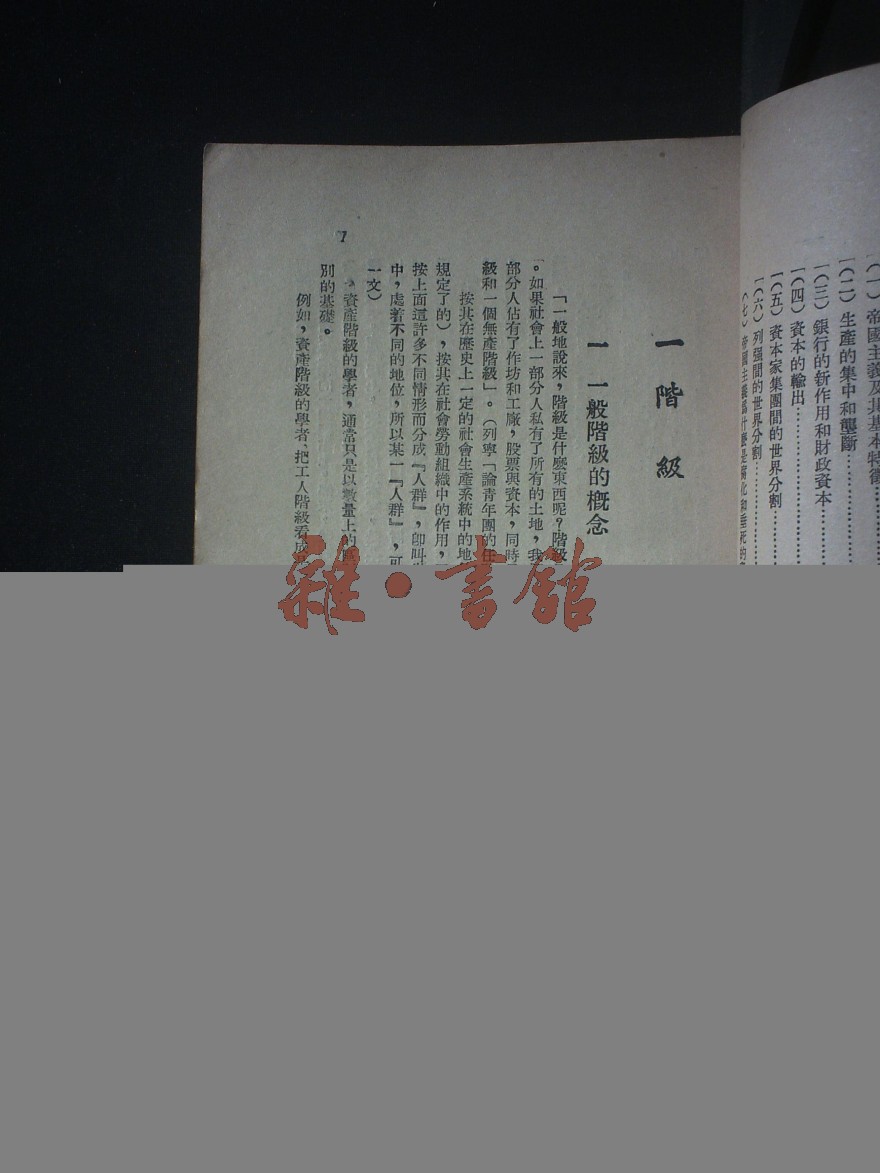 (一) 帝國主義及其基本特徵
(二) 生產的集中和壟斷
(三) 銀行的新作用和財政資本
(四) 資本的輸出
(五) 資本家集團間的世界分割
(六) 列强間的世界分割
(七) 帝國主義爲什麼是腐化和垂死的
一 階 級
一 一般階級的概念
「一般地說來，階級是什麼東西呢？階級
。如果社會上一部分人私有了所有的土地，我
部分人佔有了作坊和工廠，股票與資本，同時
級和一個無產階級」。（列寧「論青年團的任
按其在歷史上一定的社會生產系統中的地
規定了的），按其在社會勞動組織中的作用，
按上面這許多不同情形而分成『人群』，卽叫
中，處着不同的地位，所以某一『人群』，可
一文）
資產階級的學者，通常只是以數量上的
別的基礎。
例如，資產階級的學者、把工人階級看成
1
雜·書館